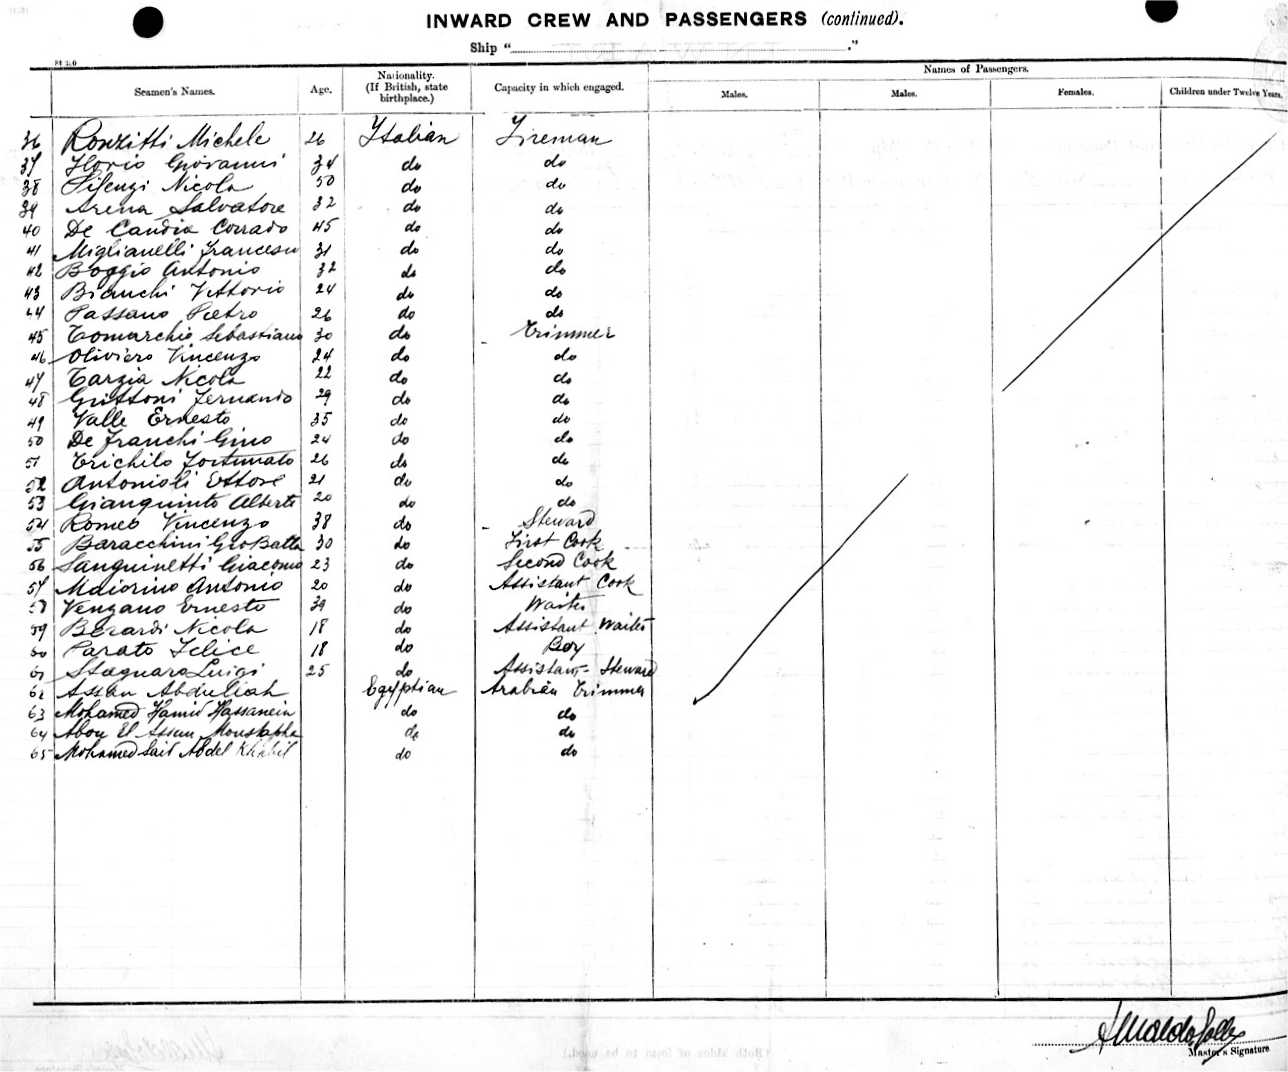 INWARD CREW AND PASSENGERS (continued).
Ship “ .”
Seamen's Names. Age. Nationality. (If British, state birthplace.) Capacity in which engaged. Names of Passengers.
Males. Males. Females. Children under Twelve Years.
36 Ronzitti Michele 26 Italian Fireman
37 Florio Giovanni 34 do do
38 Silenzi Nicola 50 do do
39 Arena Salvatore 32 do do
40 De Candia Corrado 45 do do
41 Miglianelli Francesco 31 do do
42 Boggio Antonio 32 do do
43 Bianchi Vittorio 24 do do
44 Passano Pietro 26 do do
45 Tomarchio Sebastiano 30 do Trimmer
46 Oliviero Vincenzo 24 do do
47 Targia Nicola 22 do do
48 Grittoni Fernando 29 do do
49 Valle Ernesto 35 do do
50 De Franchi Gino 24 do do
51 Trichilo Fortunato 26 do do
52 Antonioli Ettore 21 do do
53 Gianquinto Alberto 20 do do
54 Romeo Vincenzo 38 do Steward
55 Baracchini Gio Batta 30 do First Cook
56 Sanguinetti Giacomo 23 do Second Cook
57 Maiorino Antonio 20 do Assistant Cook
58 Vengano Ernesto 39 do Waiter
59 Berardi Nicola 18 do Assistant Waiter
60 Parato Felice 18 do Boy
61 Stagnaro Luigi 25 do Assistant Steward
62 Assan Abduliah Egyptian Arabian Trimmer
63 Mohamed Hamid Hassanein do do
64 Abou El Assun Moustapha do do
65 Mohamed Said Abdel Khalil do do
Master's Signature